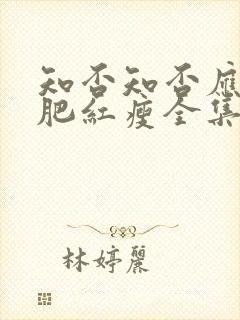 知否知否應
肥紅瘦全集
林婷麗